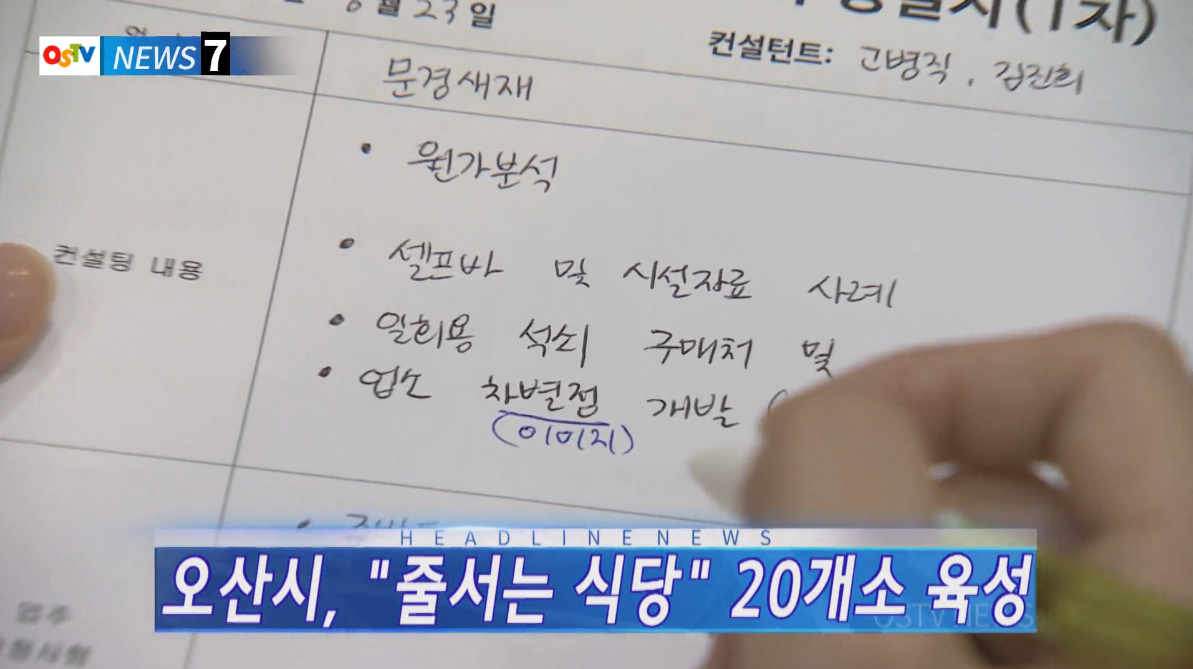 8월 23일
(1차)
컨설턴트: 고병직, 김진희
OSTV NEWS 7
문경새재
• 원가분석
컨설팅 내용
• 셀프바 및 시설자료 사례
• 일회용 석쇠 구매처 및
• 업소 차별점 개발
(이미지)
HEADLINE NEWS
오산시, "줄서는 식당" 20개소 육성
OSTV NEWS
업주